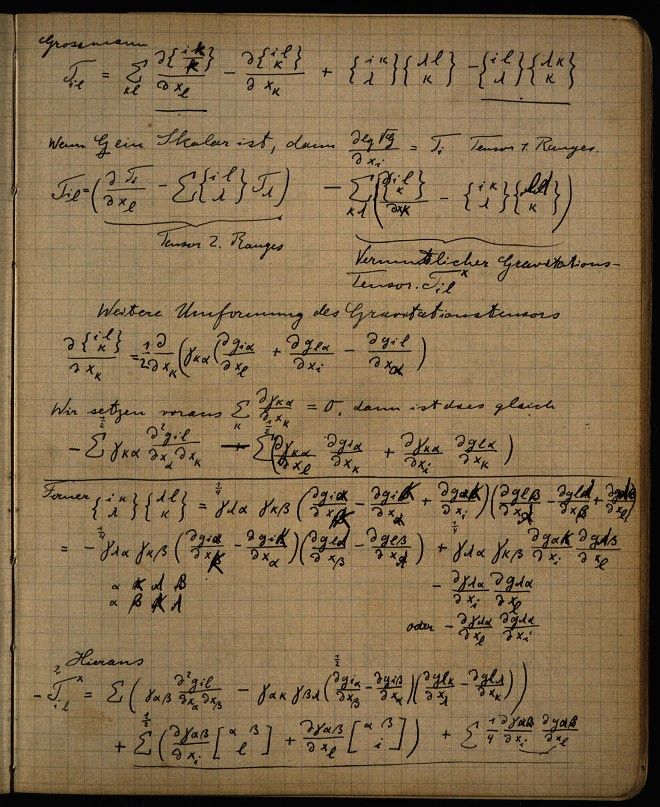 Grossmann
T_il = Σ_κl ∂{i κ / κ}/∂x_l − ∂{i l / κ}/∂x_κ + {i κ / λ}{λ l / κ} − {i l / λ}{λ κ / κ}
Wenn G ein Skalar ist, dann ∂lg√G/∂x_i = T_i Tensor 1. Ranges.
T_il = (∂T_i/∂x_l − Σ{i l / λ}T_λ) − Σ_κλ(∂{i l / κ}/∂x_κ − {i κ / λ}{λ l / κ})
Tensor 2. Ranges
Vermutlicher Gravitations-
Tensor. T_il^x
Weitere Umformung des Gravitationstensors
∂{i l / κ}/∂x_κ = 1/2 ∂/∂x_κ (γ_κα (∂g_iα/∂x_l + ∂g_lα/∂x_i − ∂g_il/∂x_α)
Wir setzen voraus Σ_κ ∂γ_κα/∂x_κ = 0, dann ist dies gleich
− 1/2 Σ γ_κα ∂²g_il/∂x_α∂x_κ − 1/2 Σ(∂γ_κα/∂x_l ∂g_iα/∂x_κ + ∂γ_κα/∂x_i ∂g_lα/∂x_κ)
Ferner {i κ / λ}{λ l / κ} = 1/4 γ_λα γ_κβ (∂g_iα/∂x_κ − ∂g_iκ/∂x_α + ∂g_ακ/∂x_i)(∂g_lβ/∂x_λ − ∂g_lλ/∂x_β + ∂g_λβ/∂x_l)
= − 1/4 γ_λα γ_κβ (∂g_iα/∂x_κ − ∂g_iκ/∂x_α)(∂g_lλ/∂x_β − ∂g_lβ/∂x_λ) + 1/4 γ_λα γ_κβ ∂g_ακ/∂x_i ∂g_λβ/∂x_l
α κ λ β
α β κ λ
− ∂γ_λα/∂x_i ∂g_λα/∂x_l
oder − ∂γ_λα/∂x_l ∂g_λα/∂x_i
Hieraus
−2 T_il^x = Σ(γ_αβ ∂²g_il/∂x_α∂x_β − 1/2 γ_ακ γ_βλ (∂g_iα/∂x_β − ∂g_iβ/∂x_α)(∂g_lκ/∂x_λ − ∂g_lλ/∂x_κ))
+ 1/2 Σ(∂γ_αβ/∂x_i [α β / l] + ∂γ_αβ/∂x_l [α β / i]) + Σ 1/4 ∂γ_αβ/∂x_i ∂g_αβ/∂x_l